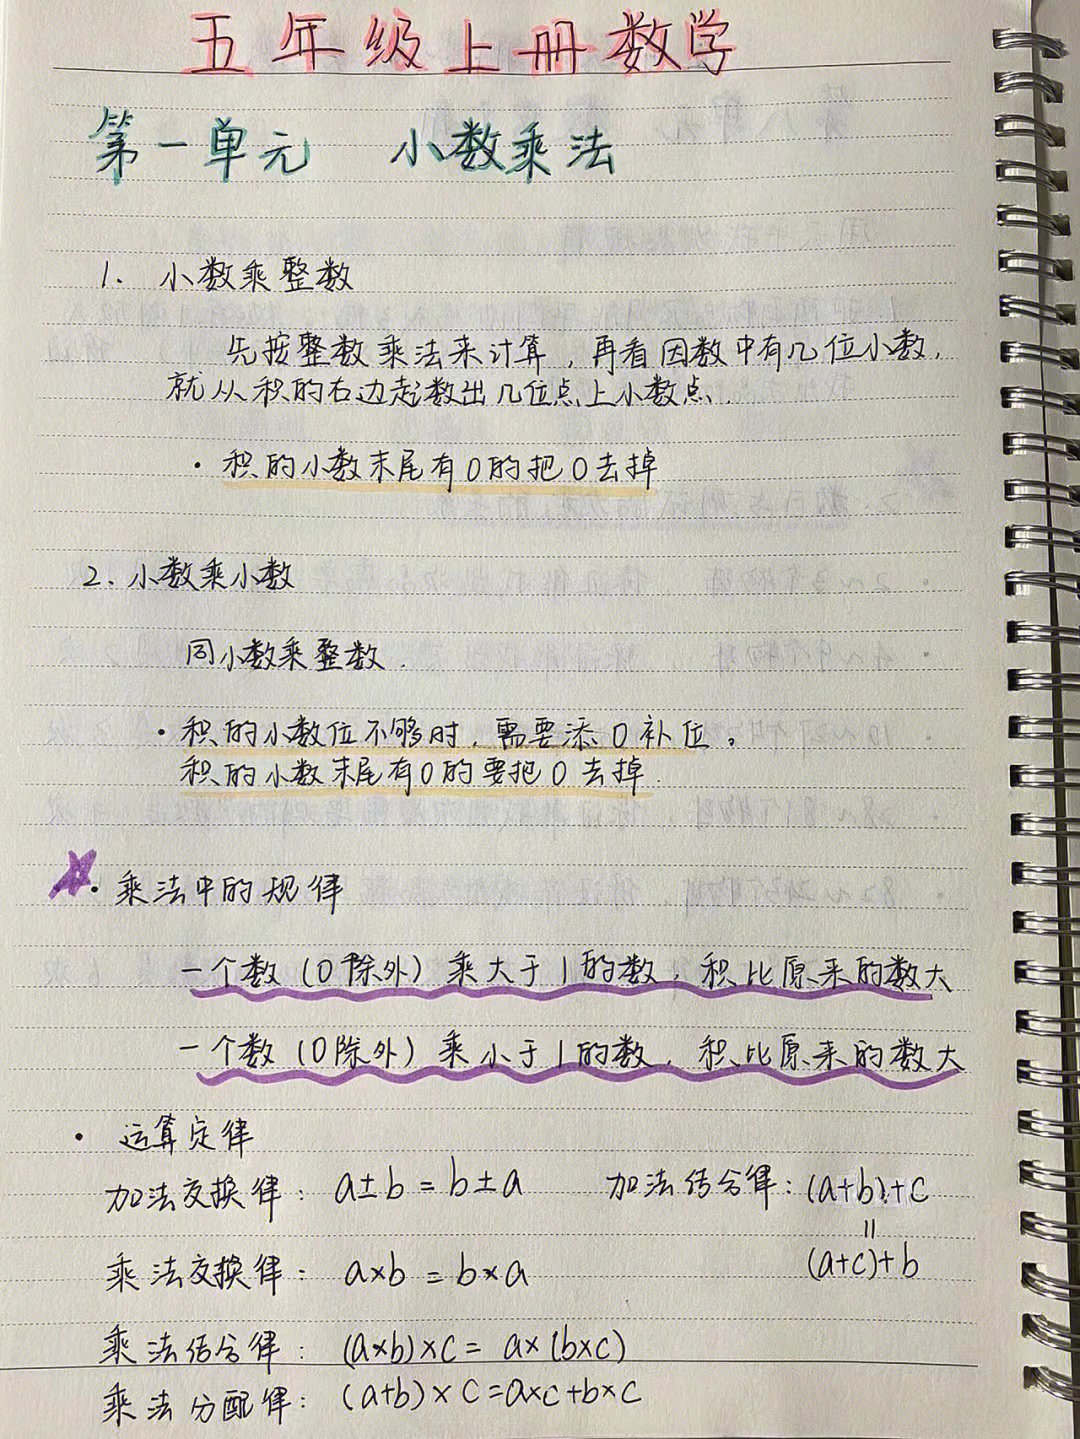 五年级上册数学
第一单元 小数乘法
1. 小数乘整数
先按整数乘法来计算，再看因数中有几位小数，
就从积的右边起数出几位点上小数点.
· 积的小数末尾有0的把0去掉
2. 小数乘小数
同小数乘整数.
· 积的小数位不够时，需要添0补位，
积的小数末尾有0的要把0去掉.
· 乘法中的规律
一个数(0除外)乘大于1的数，积比原来的数大
一个数(0除外)乘小于1的数，积比原来的数大
· 运算定律
加法交换律: a±b=b±a 加法结合律: (a+b)+c
=
(a+c)+b
乘法交换律: a×b=b×a
乘法结合律: (a×b)×c= a×(b×c)
乘法分配律: (a+b)×c=a×c+b×c